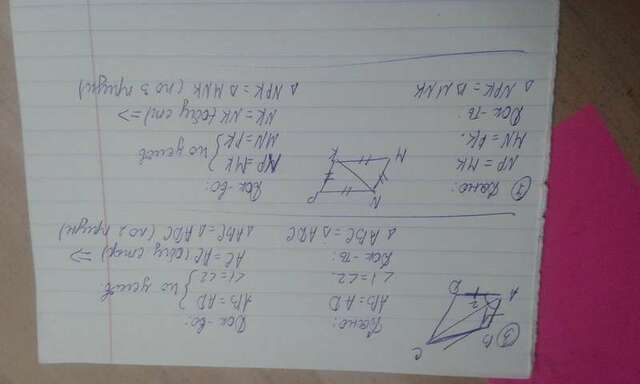 ③ B C A D 1 2
Дано:
AB = AD
∠1 = ∠2.
Док-ть:
△ ABC = △ ADC
Док-во:
AB = AD
∠1 = ∠2 } по услов.
AC = AC (общ стор) =>
△ABC = △ADC (по 1 призн)
⑦ Дано:
NP = MK
MN = PK.
Док-ть:
△ NPK = △ MNK
N P K M
Док-во:
NP = MK
MN = PK } по услов
NK = NK (общ ст) =>
△ NPK = △ MNK (по 3 призн)